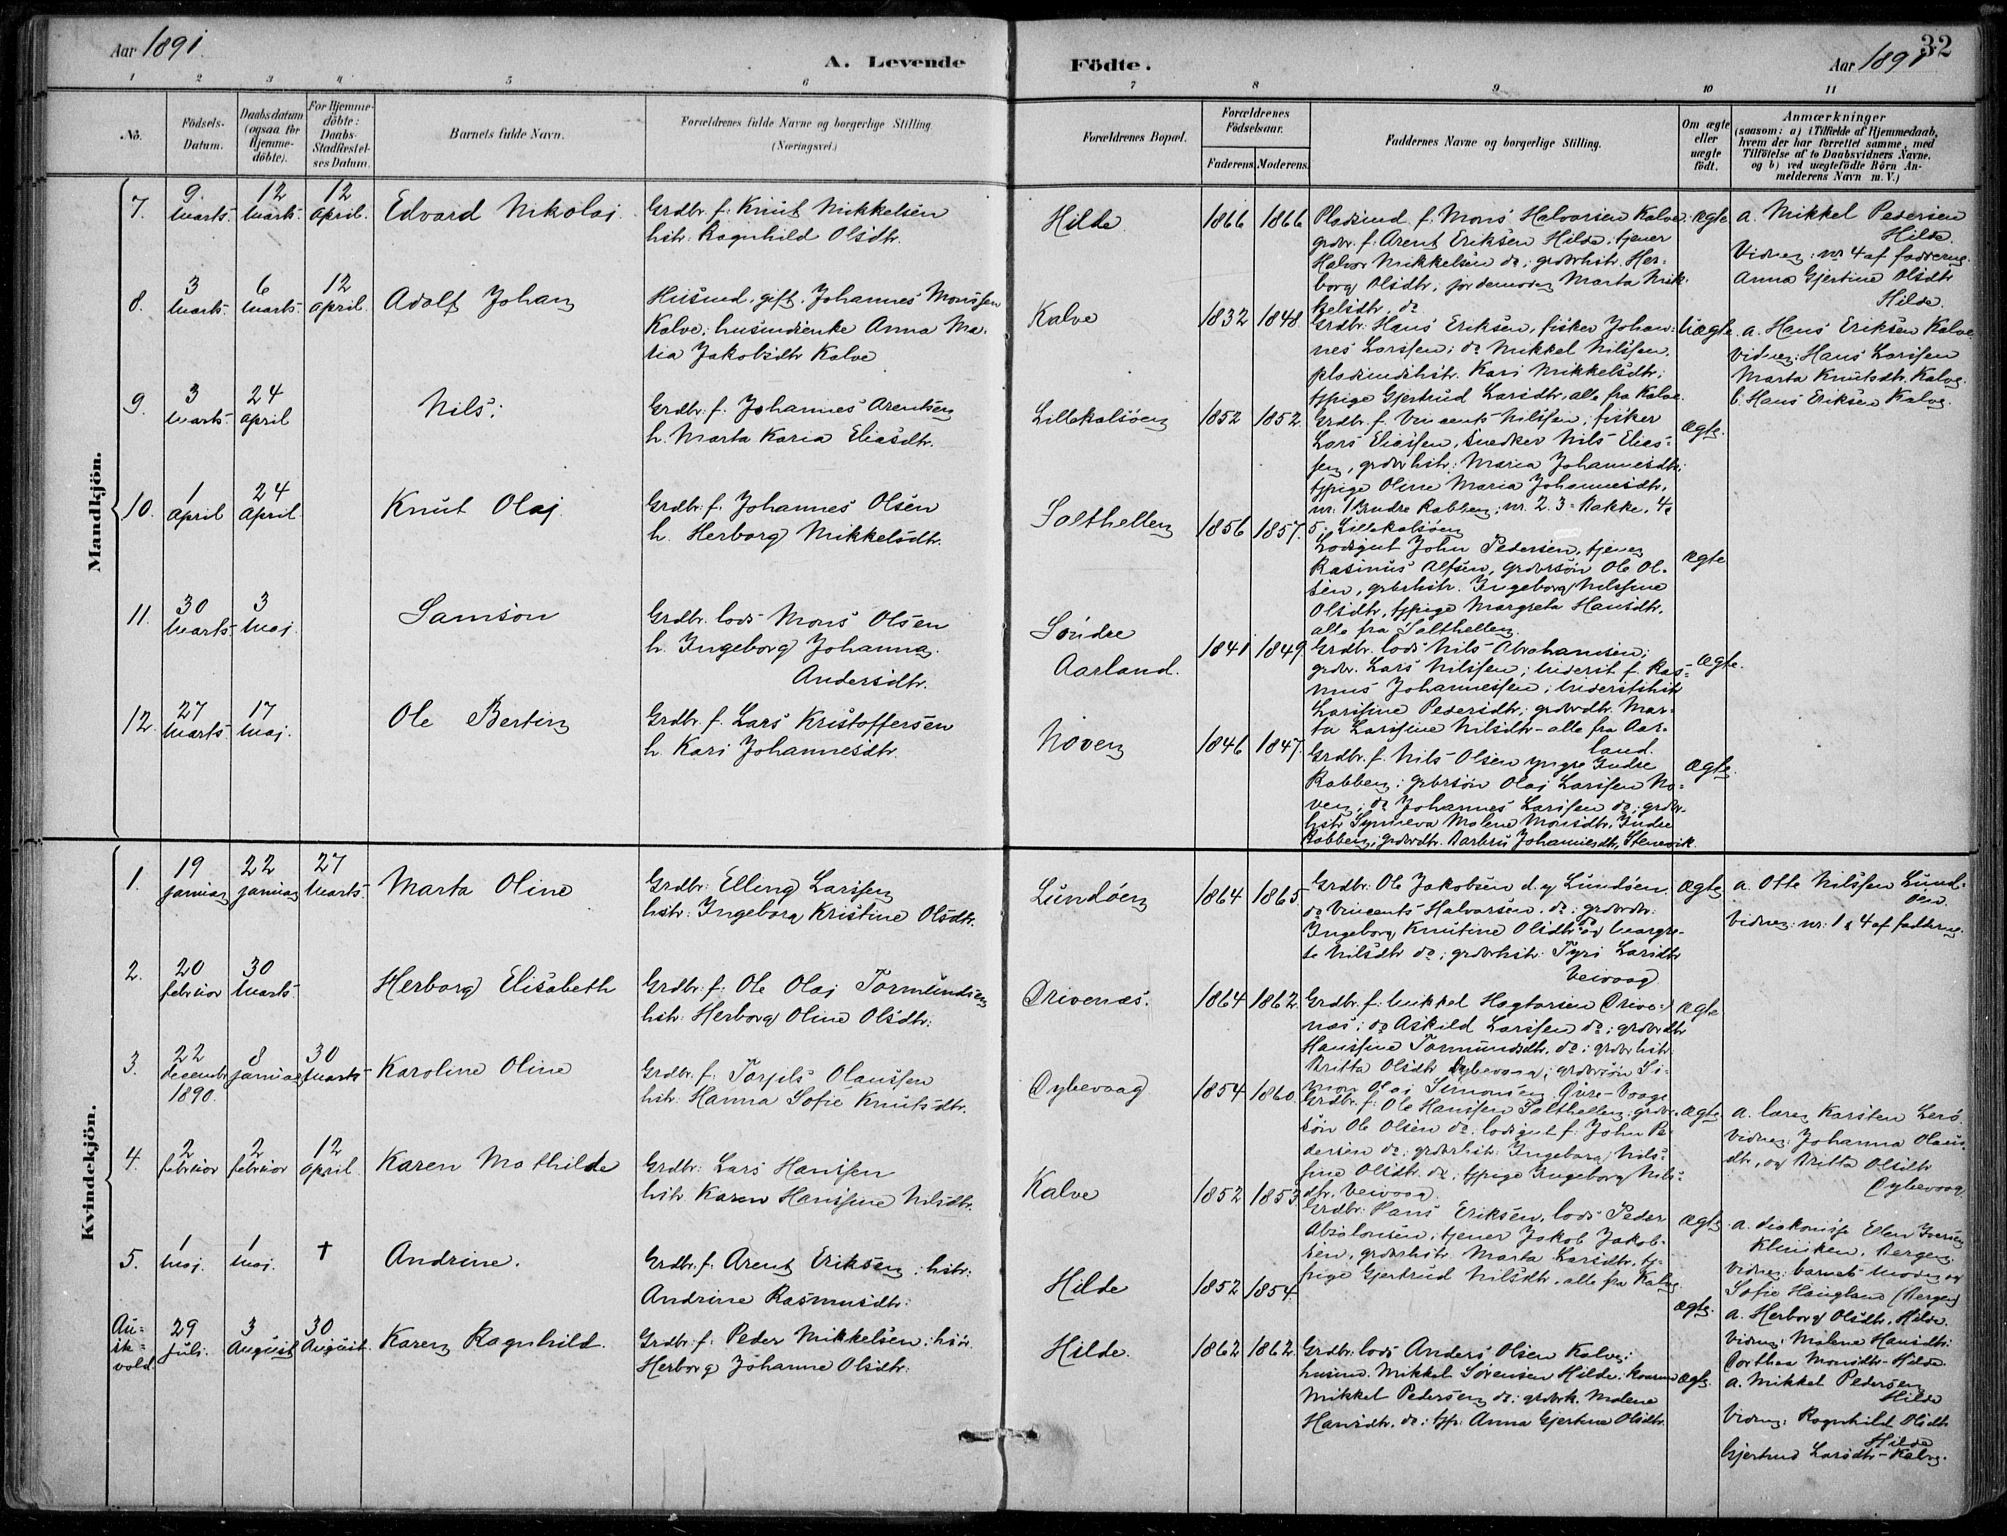 Aar 1891.
A. Levende
Födte.
Aar 1891
32
1 2 3 4 5 6 7 8 9 10 11
No.
Födsels-
Datum.
Daabsdatum
(ogsaa for
Hjemme-
döbte).
For Hjemme-
döbte:
Daabs-
Stadfæstel-
ses Datum.
Barnets fulde Navn.
Forældrenes fulde Navne og borgerlige Stilling
(Næringsvei.)
Forældrenes Bopæl.
Forældrenes
Födselsaar.
Faderens. Moderens.
Faddernes Navne og borgerlige Stilling.
Om ægte
eller
uægte
födt.
Anmærkninger
(saasom: a) i Tilfælde af Hjemmedaab,
hvem der har forrettet samme, med
Tilföielse af to Daabsvidners Navne,
og b) ved uægtefödte Börn An-
melderens Navn m. V.)
Mandkjön.
7.
9 marts.
12 marts.
12 april.
Edvard Nikolai.
Grdbr. f. Knut Mikkelsen
hstr. Ragnhild Olsdtr.
Hilde.
1866 1866
Pladsmd. f. Mons Halvorsen Kalve;
grdbr. f. Arent Eriksen Hilde; tjener
Halvor Mikkelsen do; grdbrhstr. Her-
borg Olsdtr, jordemoder Marta Mik-
kelsdtr, do
Ægte
a. Mikkel Pedersen
Hilde.
Vidner: nr 4 af fadderne.
Anna Gjertine Olsdtr
Hilde.
8.
3 marts.
6 marts.
12 april.
Adolf Johan
Husmd. gift. Johannes Monssen
Kalve; husmdienke Anna Ma-
ria Jakobsdtr Kalve
Kalve
1832 1848.
Grdbr. Hans Eriksen, fisker Johan-
nes Larssen; do Mikkel Nilssen,
pladsmdshstr. Kari Mikkelsdtr;
tjpige Gjertrud Larsdtr, alle fra Kalve.
Uægte.
a. Hans Eriksen Kalve.
Vidner: Hans Larssen
Marta Knutsdtr. Kalve.
b. Hans Eriksen Kalve.
9.
3 marts.
24 april
Nils.
Grdbr. f. Johannes Arentsen
h. Marta Karia Eliasdtr.
Lillekalsøen
1852 1852.
Grdbr. f. Vincents Nilssen, fisker
Lars Eliassen, snedker Nils Elias-
sen, grdbrhstr. Maria Johannesdtr;
tjpige Oline Maria Johannesdtr,
nr. 1 Indre Rabben; nr. 2. 3 = Bakke. 4,
5 Lillekalsøen
Ægte.
10.
1 april
24 april.
Knut Olaj.
Grdbr. f. Johannes Olsen
h. Herborg Mikkelsdtr.
Salthellen
1856 1857.
Lodsgut John Pedersen, tjener
Rasmus Alfsen, grdbrsøn Ole Ol-
sen, grdbrhstr. Ingeborg Nilssine
Olsdtr, tjpige Margreta Hansdtr,
alle fra Salthellen.
Ægte
11.
30 marts.
3 maj.
Samson
Grdbr. lods Mons Olsen
h. Ingeborg Johanna
Andersdtr.
Søndre
Aarland.
1841 1849
Grdbr. lods Nils Abrahamsen;
grdbr. Lars Nilssen; inderst f. Ras-
mus Johannessen; inderstshstr
Larssine Pedersdtr; grdbrdtr Mar-
ta Larssine Nilsdtr - alle fra Aar-
land.
Ægte.
12.
27 marts.
17 maj.
Ole Bertin
Grdbr. f. Lars Kristoffersen
h. Kari Johannesdtr.
Noven
1846 1847.
Grdbr. f. Nils Olsen yngre Indre
Rabben; grdbrsøn Olaj Larssen No-
ven; do Johannes Larssen do; grdbr-
hstr Synneva Malene Monsdtr, Indre
Rabben; grdbrdtr. Barbru Johannesdtr, Stenevik.
Ægte.
Kvindekjön.
1.
19 januar
22 januar
27 marts.
Marta Oline
Grdbr. Elling Larssen
hstr. Ingeborg Kristine Olsdtr.
Lundøen
1864 1865.
Grdbr. Ole Jakobsen d. y Lundøen,
do Vincents Halvorsen, do; grdbrdtr.
Ingeborg Knutine Olsdtr do og Margre-
te Nilsdtr do; grdbrhstr. Tyri Larsdtr
Veivaag
Ægte
a. Otte Nilssen Lund-
øen.
Vidner: nr. 1 & 4 af fadderne.
2.
20 februar
30 marts.
Herborg Elisabeth
Grdbr. f. Ole Olaj Tormundsen
hstr. Herborg Oline Olsdtr.
Drivenæs.
1864 1862.
Grdbr. f. Mikkel Hagtorsen Drive-
næs; do Askild Larssen do; grdbrdtr
Hanssine Tormundsdtr. do; grdbrhstr.
Britta Olsdtr Dybevaag; grdbrsøn Si-
mon Olaj Simonsen Øvre-Vaage
Ægte
3.
22 decembr 1890.
8 januar
30 marts.
Karoline Oline
Grdbr. f. Torjils Olaussen
hstr. Hanna Sofie Knutsdtr.
Dybevaag
1854 1860.
Grdbr. f. Ole Hanssen Salthellen; grdbr-
søn Ole Olsen do; lodsgut f. John Pe-
dersen do; grdbrhstr. Ingeborg Nils-
sine Olsdtr do; tjpige Ingeborg Nils-
dtr. Veivaag.
Ægte
a. lærer Karsten Lerø.
Vidner: Johanna Olaus-
dtr, og Britta Olsdtr
Dybevaag.
4.
2 februar
2 februar
12 april.
Karen Mathilde
Grdbr. Lars Hanssen
hstr Karen Hanssine Nilsdtr.
Kalve
1852 1853.
Grdbr. Hans Eriksen, lods Peder
Absalonsen, tjener Jakob Jakob-
sen, grdbrhstr. Marta Larsdtr. tj-
pige Gjertrud Nilsdtr. alle fra Kalve
Ægte
a. diakonisse Ellen Iversen
Kliniken, Bergen.
Vidner: barnets moder og
Sofie Haugland (Bergen)
5.
1 maj.
1 maj.
†
Andrine.
Grdbr. f. Arent Eriksen; hstr.
Andrine Rasmusdtr.
Hilde
1852 1854.
Ægte.
a. Herborg Olsdtr. Hilde.
Vidner: Malene Hansdtr.
Dorthea Monsdtr - Hilde.
Au-
sk-
vold
29 juli.
3 August
30 August.
Karen Ragnhild.
Grdbr. f. Peder Mikkelsen. hstr
Herborg Johanne Olsdtr.
Hilde.
1862 1862.
Grdbr. lods Anders Olsen Kalve;
husm. Mikkel Sørensen Hilde; kaarm
Mikkel Pedersen do; grdbrk. Malene
Hansdtr. do; tjp. Anna Gjertine Olsdtr.
Ægte.
a. Mikkel Pedersen
Hilde
Vidner: Ragnhild Olsdtr
Hilde
Gjertrud Larsdtr - Kalve.